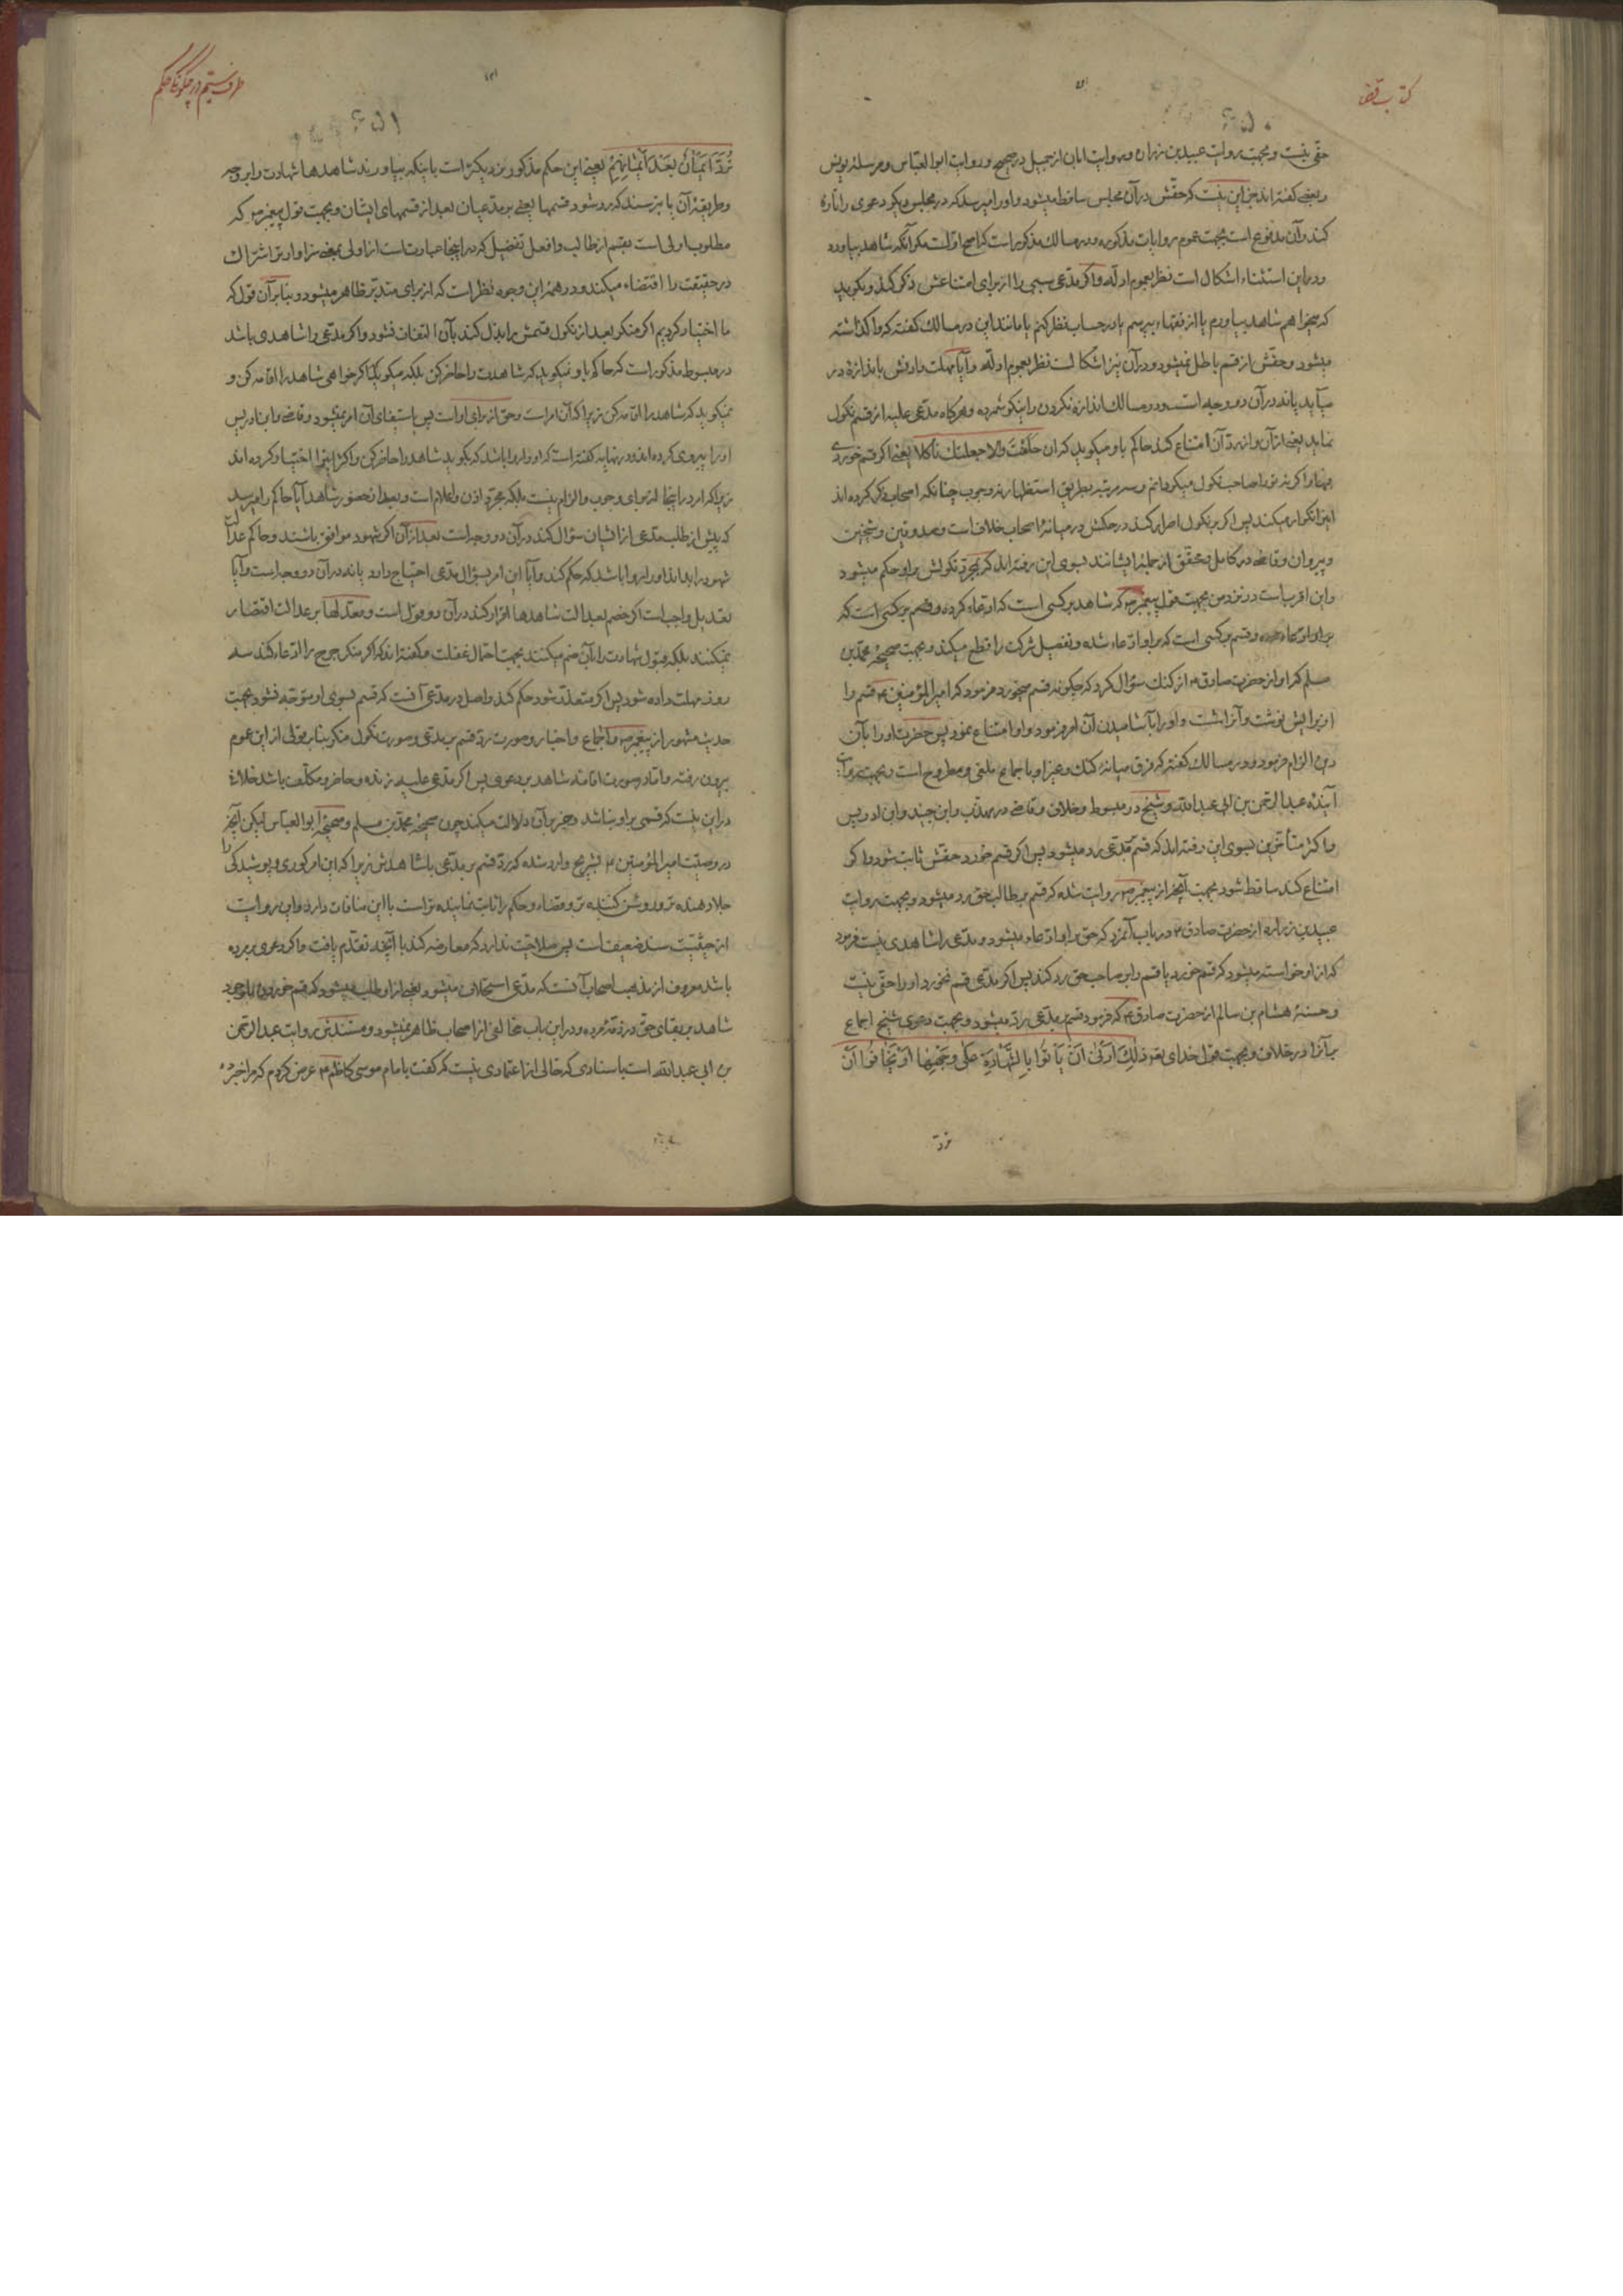 کتاب قضا
حقی نیست و بجهت روایت عبید بن زراره و روایت ابان از جمیل در صحیح و روایت ابوالعباس و مرسله یونس
و بعضی گفته‌اند جز این نیست که حقش در آن مجلس ساقط میشود و او را میرسد که در مجلس دیگر دعوی را تازه
کند و آن مدفوع است بجهت عموم روایات مذکوره و در مسالک مذکور است که اصح اول است مگر آنکه شاهد بیاورد
و در این استثناء اشکال است نظر بعموم ادله و اگر مدعی سببی را از برای امتناعش ذکر کند و بگوید
که میخواهم شاهد بیاورم یا از فقهاء بپرسم یا در حساب نظر کنم یا مانند این در مسالک گفته که واگذاشته
میشود و حقش از قسم باطل نمیشود و در آن نیز اشکال است نظر بعموم ادله و آیا مهلت دادنش باندازه در
میآید یا نه در آن دو وجه است و در مسالک اندازه نکردن را نیکو شمرده و هرگاه مدعی علیه از قسم نکول
نماید یعنی از آن و از رد آن امتناع کند حاکم باو میگوید که ان حلفت والا جعلتک ناکلا یعنی اگر قسم خوردی
فبها و اگر نه ترا صاحب نکول میگردانم و سه مرتبه بطریق استظهار نه وجوب چنانکه اصحاب ذکر کرده‌اند
این را تکرار میکند پس اگر بر نکول اصرار کند در حکمش در میانه اصحاب خلاف است و صدوقین و شیخین
و پیروان و قاضی در کامل و محقق از جمله ایشانند بسوی این رفته‌اند که بمجرد نکولش بر او حکم میشود
و این اقرب است در نزد من بجهت قول پیغمبر ص که شاهد بر کسی است که ادعاء کرده و قسم بر کسی است که
بر او ادعاء شده و قسم بر کسی است که بر او ادعاء شده و تفصیل شرکت را قطع میکند و بجهت صحیحه محمد بن
مسلم که او از حضرت صادق ع از گنگ سؤال کرد که چگونه قسم میخورد فرمود که امیرالمؤمنین ع قسم را
از برایش نوشت و آنرا شست و او را بآشامیدن آن امر فرمود و او امتناع نمود پس حضرت او را بآن
دین الزام فرمود و در مسالک گفته که فرق میانه گنگ و غیر او باجماع ملغی و مطروح است و بجهت روایت
آینده عبدالرحمن بن ابی عبدالله و شیخ در مبسوط و خلاف و قاضی در مهذب و ابن جنید و ابن ادریس
و اکثر متاخرین بسوی این رفته‌اند که قسم بمدعی رد میشود پس اگر قسم خورد حقش ثابت شود و اگر
امتناع کند ساقط شود بجهت آنچه از پیغمبر ص روایت شده که قسم بر طالب حق رد میشود و بجهت روایت
عبید بن زراره از حضرت صادق ع در باب آنمرد که حق بر او ادعاء میشود و مدعی را شاهدی نیست فرمود
که از او خواسته میشود که قسم خورد یا قسم را بر صاحب حق رد کند پس اگر مدعی قسم نخورد او را حقی نیست
و حسنه هشام بن سالم از حضرت صادق ع که فرمود قسم بر مدعی رد میشود و بجهت دعوی شیخ اجماع
بر آنرا در خلاف و بجهت قول خدای تعو ذَلِکَ اَدْنَی اَنْ یَأْتُوا بِالشَّهَادَةِ عَلَی وَجْهِهَا اَوْ یَخَافُوا اَنْ
ترد
طرف ستم در چگونگی حکم
تُرَدَّ اَیْمَانٌ بَعْدَ اَیْمَانِهِمْ یعنی این حکم مذکور نزدیکتر است باینکه بیاورند شاهدها شهادت را بر وجه
و طریقه آن یا بترسند که رد شود قسمها یعنی بر مدعیان بعد از قسمهای ایشان و بجهت قول پیغمبر ص که
مطلوب اولی است بقسم از طالب و افعل تفضیل که در اینجا عبارتست از اولی بمعنی سزاوارتر اشتراک
در حقیقت را اقتضاء میکند و در همه این وجوه نظر است که از برای متدبر ظاهر میشود و بنابر آن قول که
ما اختیار کردیم اگر منکر بعد از نکول قسمش را بذل کند بآن التفات نشود و اگر مدعی را شاهدی باشد
در مبسوط مذکور است که حاکم باو نمیگوید که شاهدت را حاضر کن بلکه میگوید که اگر خواهی شاهد را اقامه کن و
نمیگوید که شاهد را اقامه کن زیرا که آن امر است و حق از برای او است پس باستیفای آن امر نمیشود و قاضی و ابن ادریس
او را پیروی کرده‌اند و در نهایه گفته است که او را روا باشد که بگوید شاهد را حاضر کن و اکثر اینرا اختیار کرده‌اند
زیرا که امر در اینجا از برای وجوب و الزام نیست بلکه مجرد اذن و اعلام است و بعد از حضور شاهد آیا حاکم را میرسد
که پیش از طلب مدعی از ایشان سؤال کند در آن دو وجه است بعد از آن اگر شهود موافق باشند و حاکم عدالت
شهود را بداند او را روا باشد که حکم کند و آیا این امر بسؤال مدعی احتیاج دارد یا نه در آن دو وجه است و آیا
تعدیل واجب است اگر خصم بعدالت شاهدها اقرار کند در آن دو قول است و معدلها بر عدالت اقتصار
نمیکنند بلکه قبول شهادت را بآن ضم میکنند بجهت احتمال غفلت و گفته‌اند که اگر منکر جرح را ادعاء کند سه
روز مهلت داده شود پس اگر متعذر شود حکم کند و اصل در مدعی آنست که قسم بسوی او متوجه نشود بجهت
حدیث مشهور از پیغمبر ص و اجماع و اخبار و صورت رد قسم بر مدعی و صورت نکول منکر بنابر قولی از این عموم
بیرون رفته و اما در صورت اقامه شاهد بر دعوی پس اگر مدعی علیه زنده و حاضر و مکلف باشد خلاف
در این نیست که قسمی بر او نباشد و خبر بر آن دلالت میکند چون صحیحه محمد بن مسلم و صحیحه ابوالعباس لیکن آنچه
در وصیت امیرالمؤمنین ع بشریح وارد شده که رد قسم بر مدعی با شاهدش زیرا که این امر کوری و پوشیدگی را
جلا دهنده‌تر و روشن کننده‌تر و قضاء و حکم را ثابت نماینده‌تر است با این منافات دارد و این روایت
از حیثیت سند ضعیف است پس صلاحیت ندارد که معارضه کند با آنچه تقدم یافت و اگر دعوی بر مرده
باشد معروف از مذهب اصحاب آنست که مدعی استحلاف میشود یعنی از او طلب میشود که قسم خورد با وجود
شاهد بر بقای حق در ذمه مرده و در این باب مخالفی از اصحاب ظاهر نمیشود و مستندش روایت عبدالرحمن
بن ابی عبدالله است باسنادی که خالی از اعتمادی نیست که گفت بامام موسی کاظم ع عرض کردم که مرا خبر ده